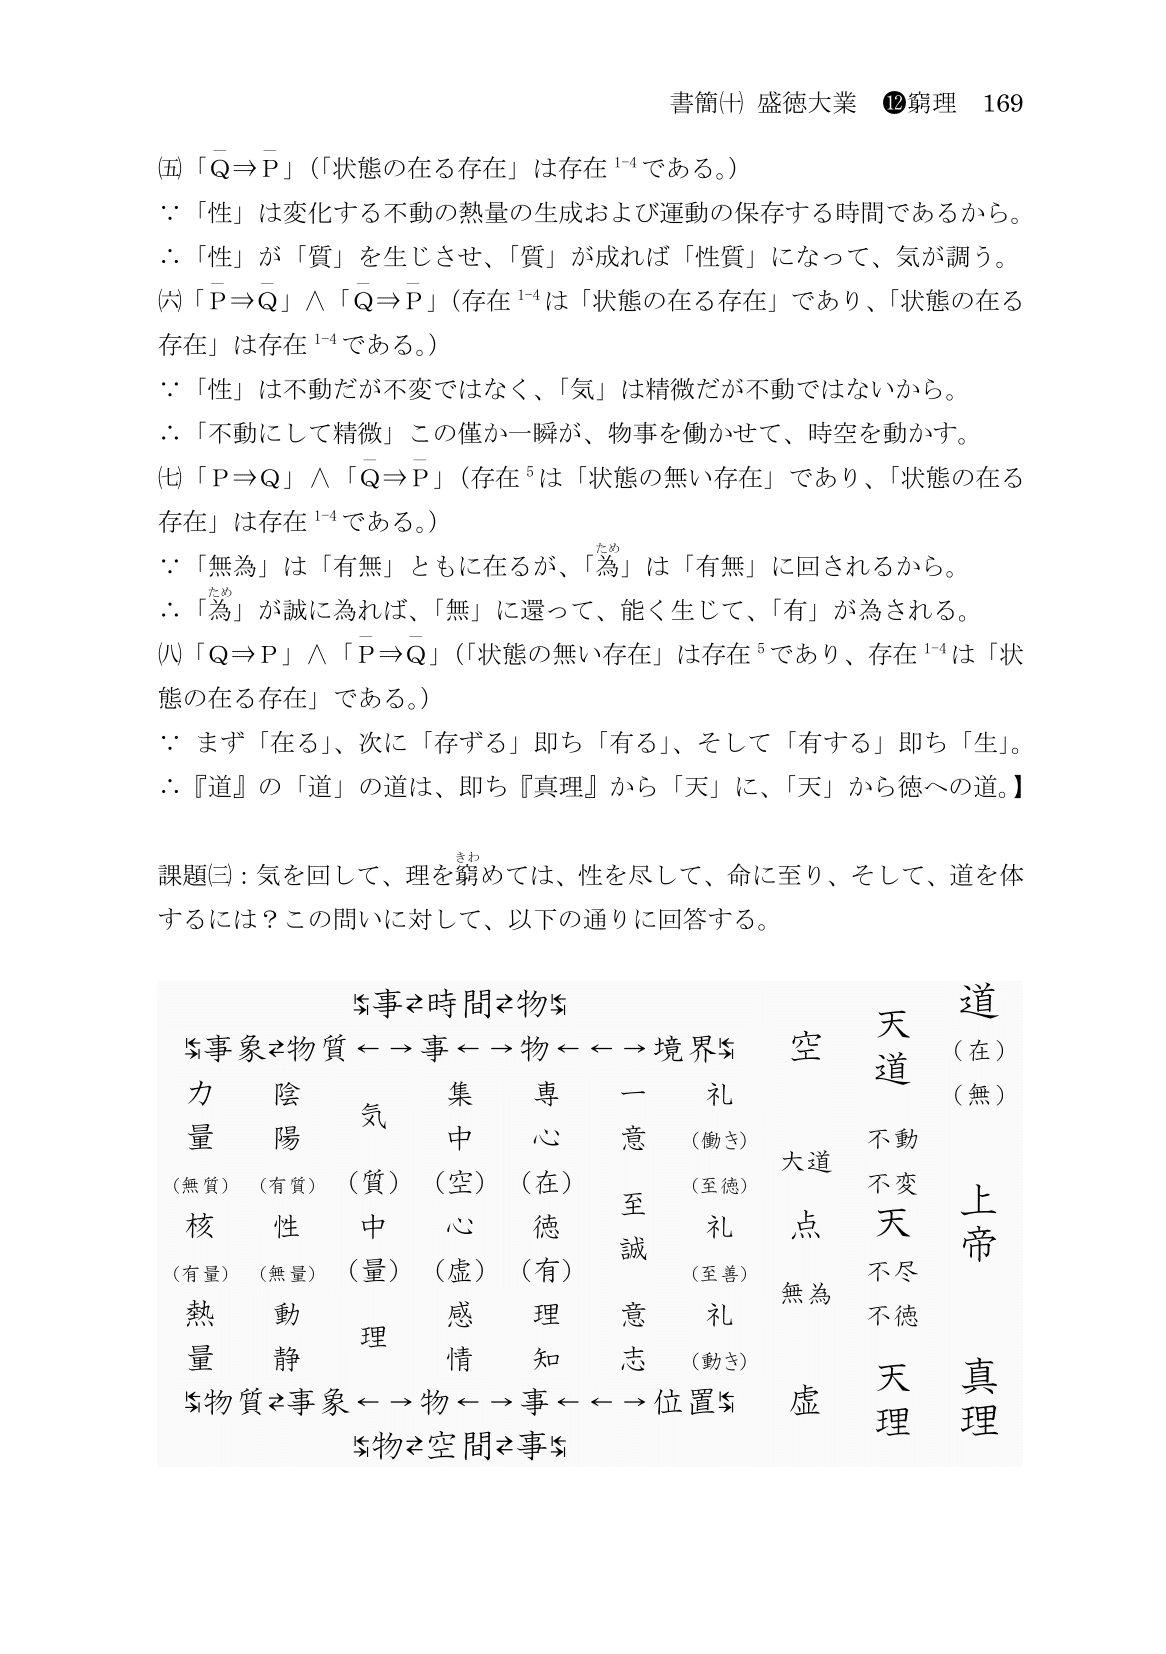 書簡㈩ 盛徳大業　⓬窮理　169
㈤「Q̅⇒P̅」（「状態の在る存在」は存在¹⁻⁴である。）
∵「性」は変化する不動の熱量の生成および運動の保存する時間であるから。
∴「性」が「質」を生じさせ、「質」が成れば「性質」になって、気が調う。
㈥「P̅⇒Q̅」∧「Q̅⇒P̅」（存在¹⁻⁴は「状態の在る存在」であり、「状態の在る
存在」は存在¹⁻⁴である。）
∵「性」は不動だが不変ではなく、「気」は精微だが不動ではないから。
∴「不動にして精微」この僅か一瞬が、物事を働かせて、時空を動かす。
㈦「P⇒Q」∧「Q̅⇒P̅」（存在⁵は「状態の無い存在」であり、「状態の在る
存在」は存在¹⁻⁴である。）
∵「無為」は「有無」ともに在るが、「為（ため）」は「有無」に回されるから。
∴「為（ため）」が誠に為れば、「無」に還って、能く生じて、「有」が為される。
㈧「Q⇒P」∧「P̅⇒Q̅」（「状態の無い存在」は存在⁵であり、存在¹⁻⁴は「状
態の在る存在」である。）
∵ まず「在る」、次に「存ずる」即ち「有る」、そして「有する」即ち「生」。
∴『道』の「道」の道は、即ち『真理』から「天」に、「天」から徳への道。】
課題㈢：気を回して、理を窮（きわ）めては、性を尽して、命に至り、そして、道を体
するには？この問いに対して、以下の通りに回答する。
↹事⇄時間⇄物↹
↹事象⇄物質←→事←→物←←→境界↹
力量（無質）核（有量）熱量
陰陽（有質）性（無量）動静
気（質）中（量）理
集中（空）心（虚）感情
専心（在）徳（有）理知
一意至誠意志
礼（働き）（至徳）礼（至善）礼（動き）
空 大道 点 無為 虚
天道 不動 不変 天 不尽 不徳 天理
道（在）（無）上帝 真理
↹物質⇄事象←→物←→事←←→位置↹
↹物⇄空間⇄事↹